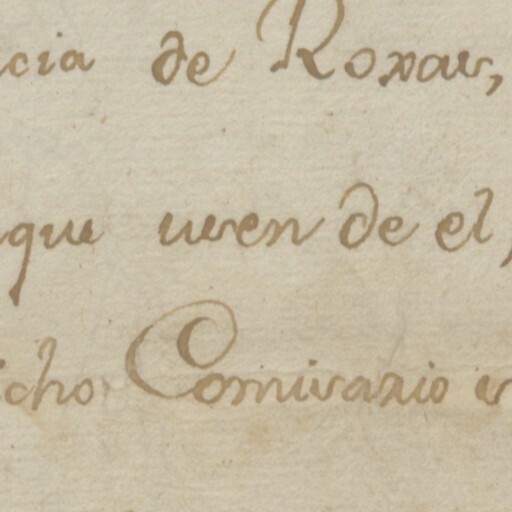 cia de Roxas,
que usen de el
icho Comisario